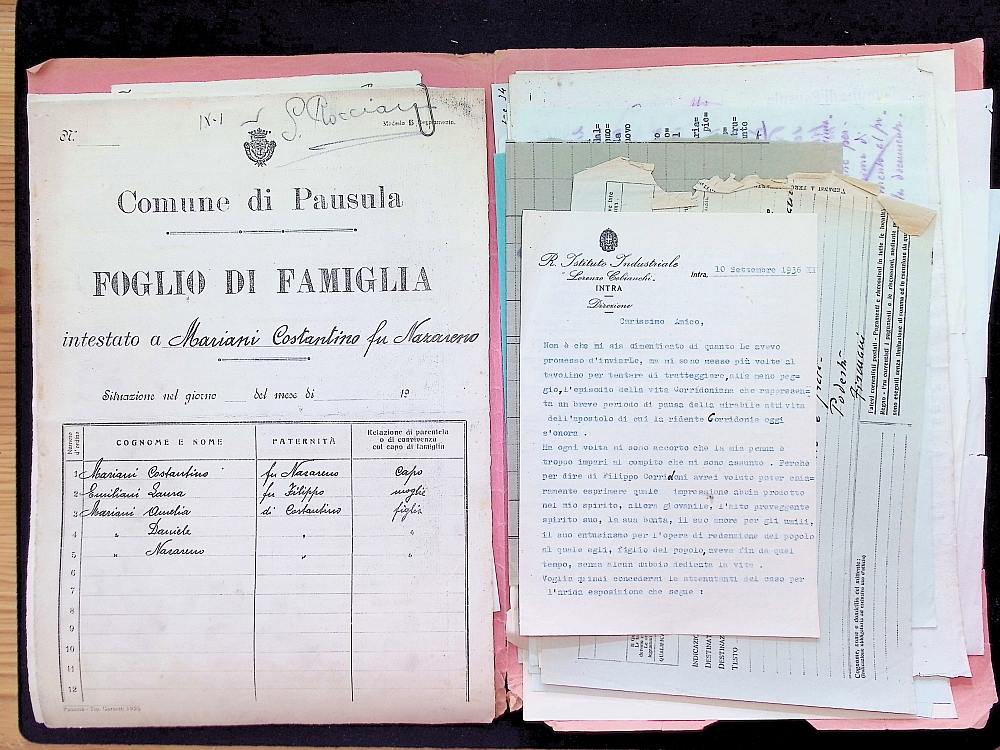 N.º
IV-1
Modello B
Comune di Pausula
FOGLIO DI FAMIGLIA
intestato a Mariani Costantino fu Nazareno
Situazione nel giorno del mese di 19
Numero d'ordine
COGNOME E NOME
PATERNITÀ
Relazione di parentela o di convivenza col capo di famiglia
1 Mariani Costantino fu Nazareno Capo
2 Emiliani Laura fu Filippo moglie
3 Mariani Amelia di Costantino figlia
4 " Daniele " "
5 " Nazareno " "
6
7
8
9
10
11
12
R. Istituto Industriale
"Lorenzo Cobianchi"
INTRA
Direzione
Intra, 10 Settembre 1936
Carissimo Amico,
Non è che mi sia dimenticato di quanto Le avevo
promesso d'inviarLe, ma mi sono messo più volte al
tavolino per tentare di tratteggiare, alla meno peg=
gio, l'episodio della vita Corridoniana che rappresen=
ta un breve periodo di pausa della mirabile attività
dell'apostolo di cui la ridente Corridonia oggi
s'onora .
Ma ogni volta mi sono accorto che la mia penna è
troppo impari al compito che mi sono assunto . Perchè
per dire di Filippo Corridoni avrei voluto poter chia=
ramente esprimere quale impressione abbia prodotto
nel mio spirito, allora giovanile, l'alto preveggente
spirito suo, la sua bontà, il suo amore per gli umili,
il suo entusiasmo per l'opera di redenzione del popolo
al quale egli, figlio del popolo, aveva fin da quel
tempo, senza alcun dubbio dedicata la vita .
Voglia quindi concedermi le attenuanti del caso per
l'arida esposizione che segue :
Podestà
INDICAZIO
DESTINAT
DESTINAZ
TESTO
Cognome, nome e domicilio del mittente: